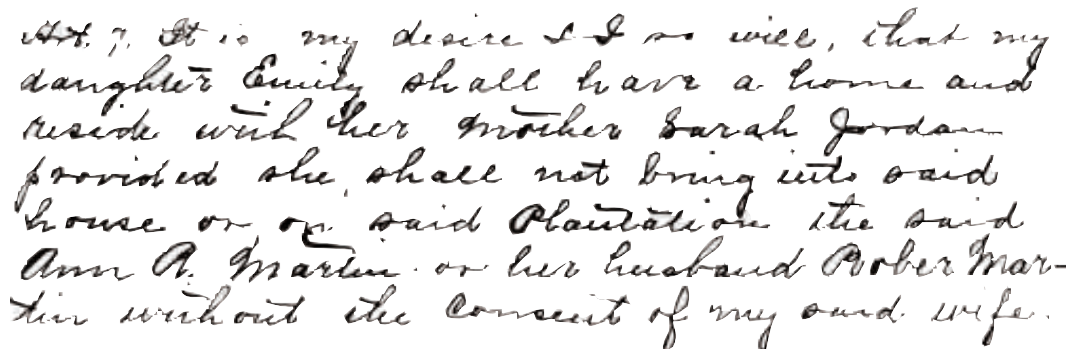 Art. 7. It is my desire & I so will, that my
daughter Emily shall have a home and
reside with her Mother Sarah Jordan
provided she shall not bring into said
house or on said Plantation the said
Ann R. Martin or her husband Rober Mar-
tin without the Consent of my said wife.